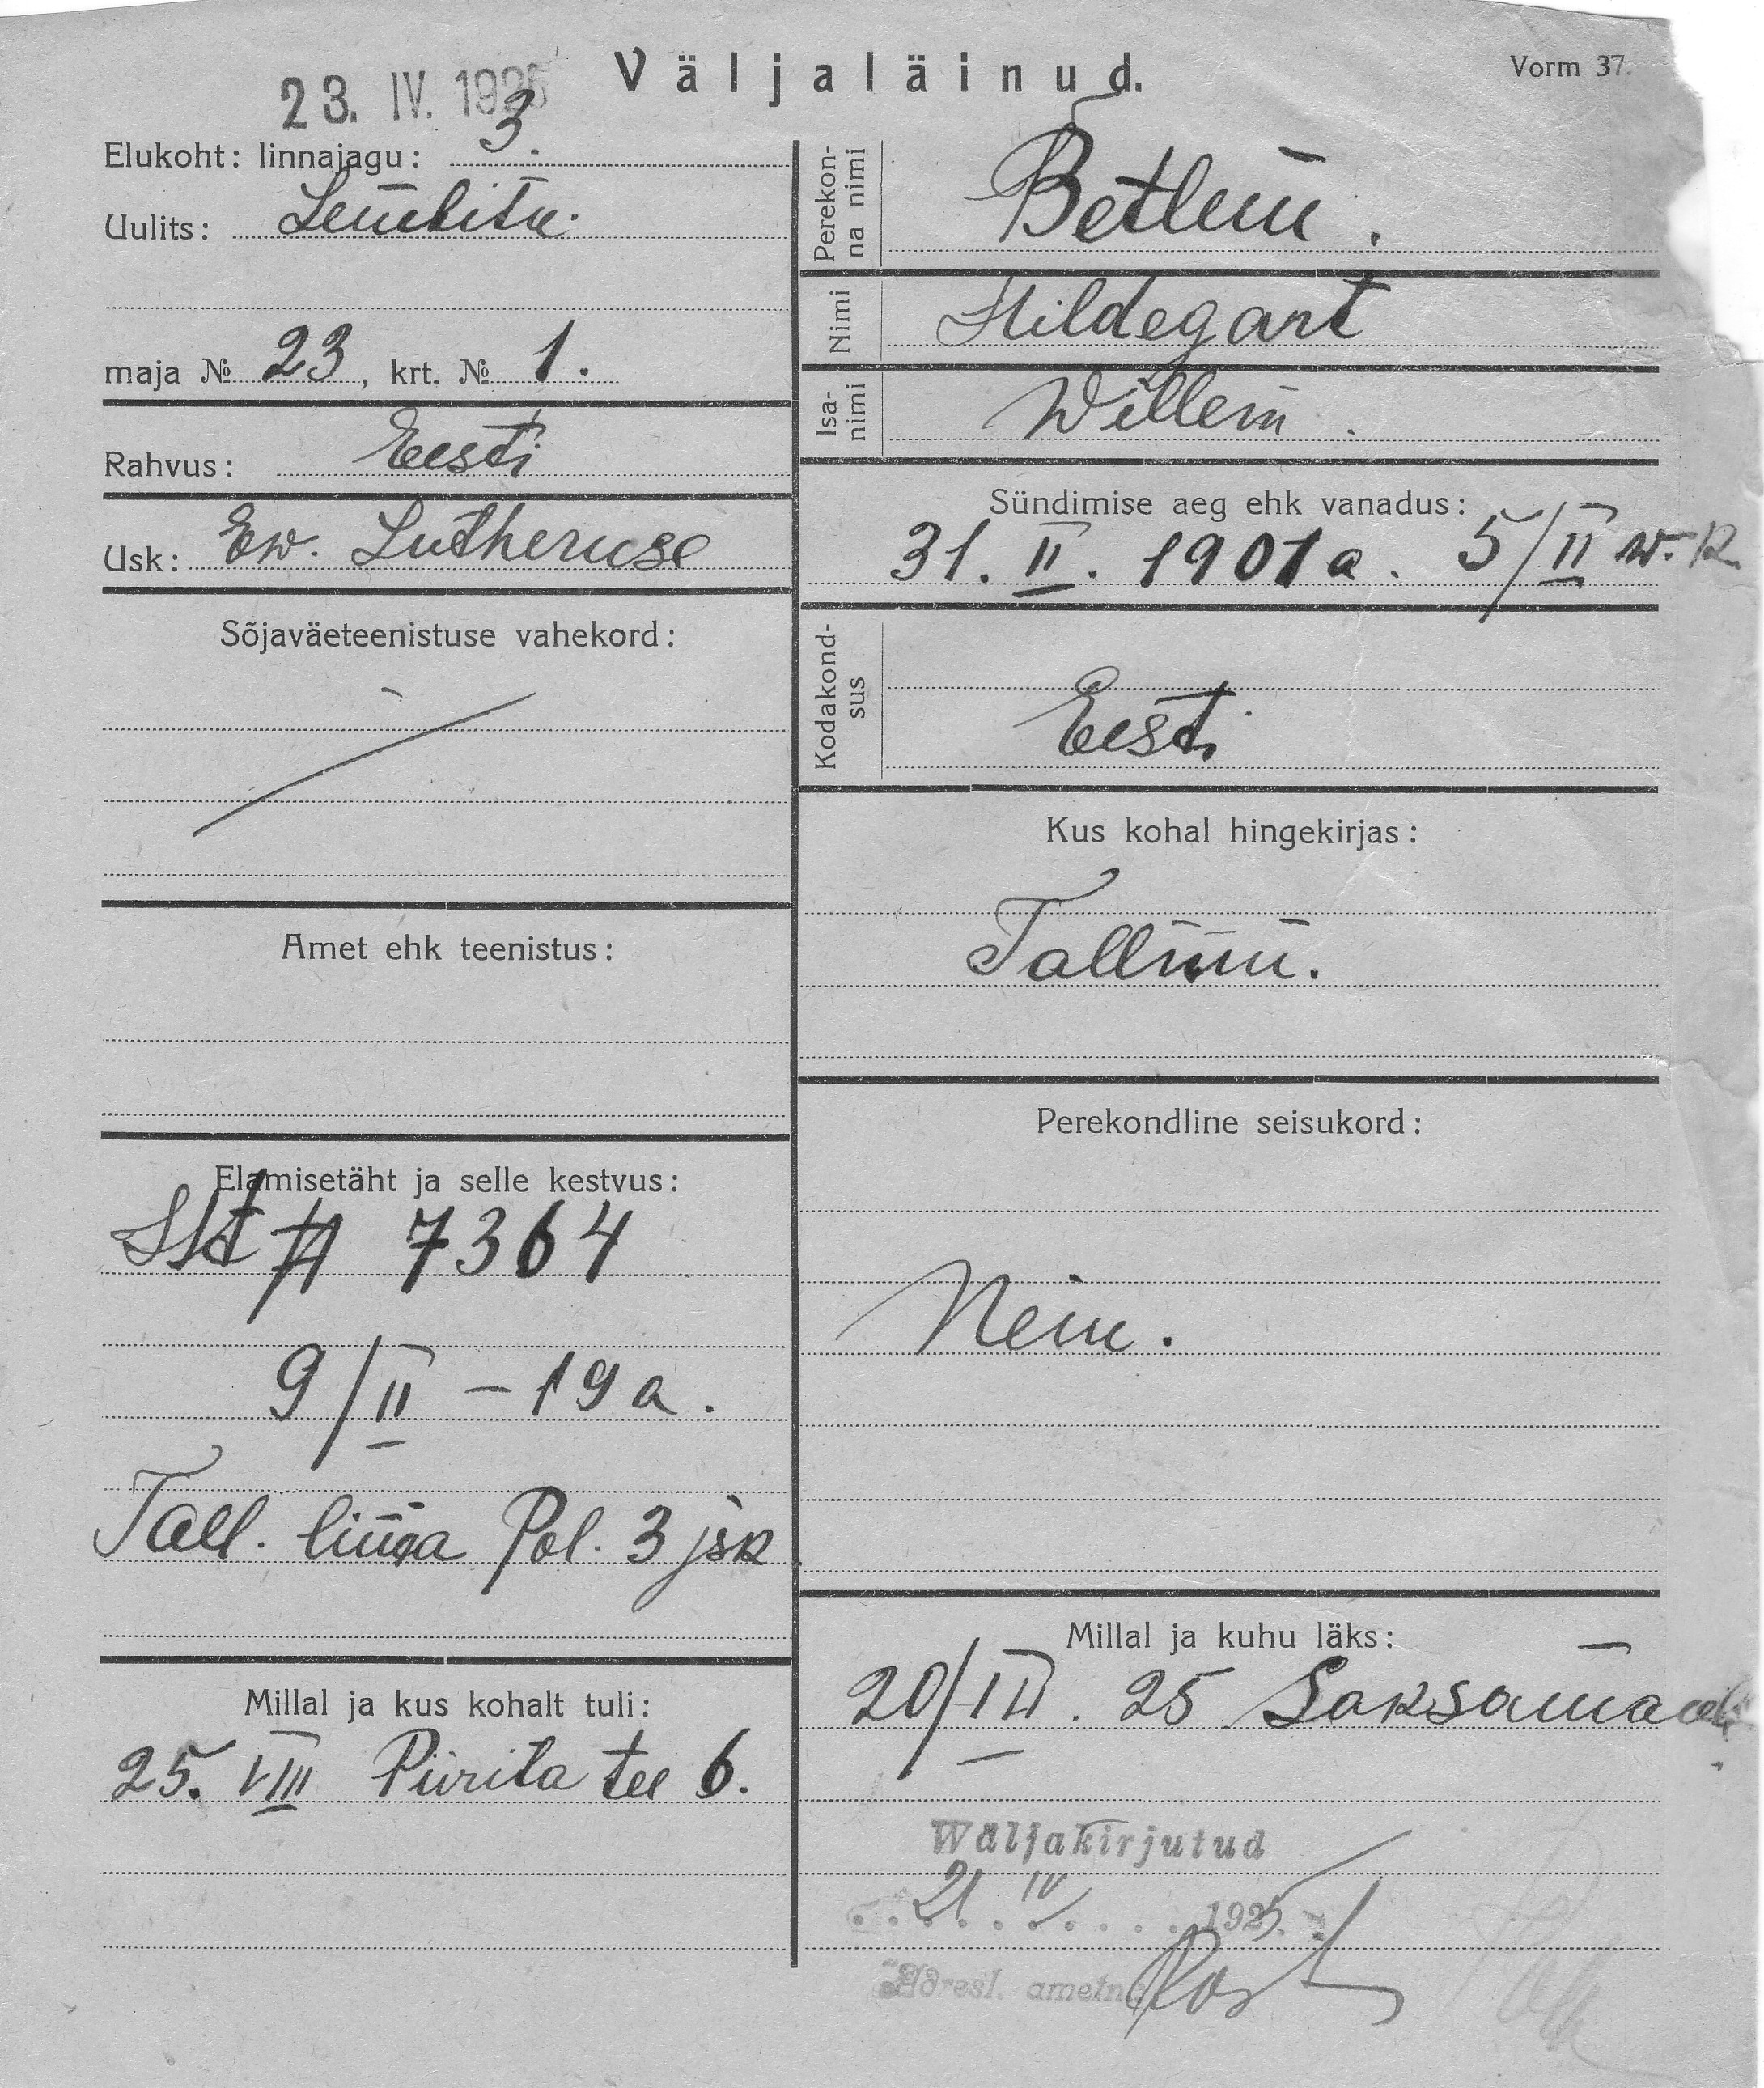 23. IV. 1925
Väljaläinud.
Vorm 37.
Elukoht: linnajagu: 3.
Uulits: Lembitu.
maja № 23, krt. № 1.
Rahvus: Eesti
Usk: Ew. Lutheruse
Sõjaväeteenistuse vahekord:
Amet ehk teenistus:
Elamisetäht ja selle kestvus:
7364
9/II – 19 a.
Tall. linna Pol. 3 jsk
Millal ja kus kohalt tuli:
25. VIII Piirita tee 6.
Perekon-
na nimi
Betlem.
Nimi
Hildegart
Isa-
nimi
Willem.
Sündimise aeg ehk vanadus:
31. II. 1901 a. 5/II w. k.
Kodakond-
sus
Eesti
Kus kohal hingekirjas:
Tallinn.
Perekondline seisukord:
Nein.
Millal ja kuhu läks:
20/III. 25 Saksamaale
Wäljakirjutud
21 IV 1925.
Adresl. ametn.